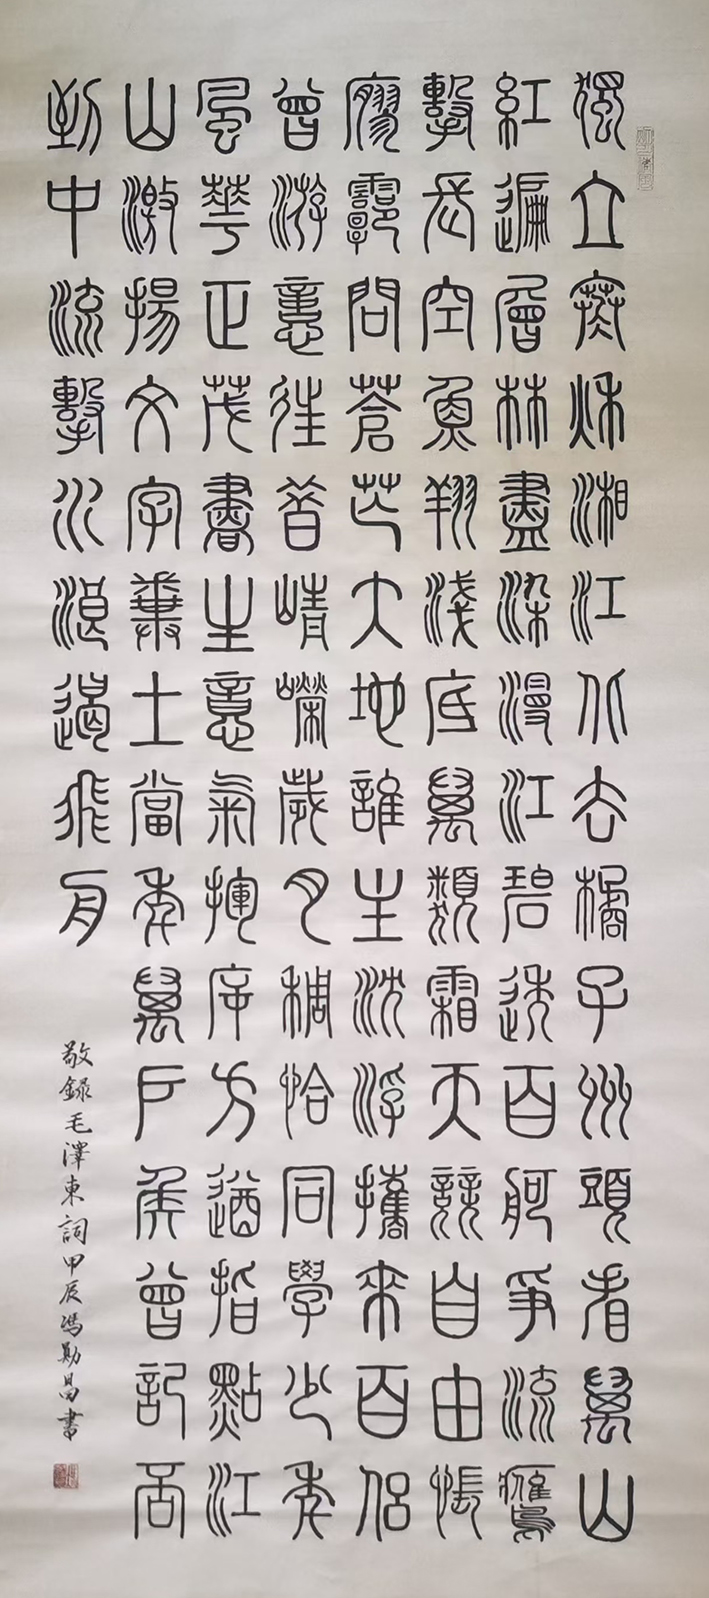 獨立寒秋湘江北去橘子州頭看萬山
紅遍層林盡染漫江碧透百舸爭流鷹
擊長空魚翔淺底萬類霜天競自由悵
廖廓問蒼茫大地誰主沈浮攜來百侶
曾游憶往昔崢嶸歲月稠恰同學少年
風華正茂書生意氣揮斥方遒指點江
山激揚文字糞土當年萬戶侯曾記否
到中流擊水浪遏飛舟
敬錄毛澤東詞甲辰馮勛昌書